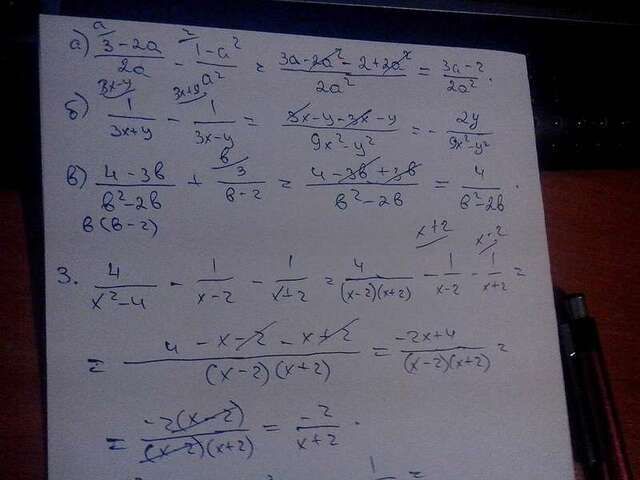 а) (3-2a)/2a - (1-a²)/a² = (3a-2a²-2+2a²)/2a² = (3a-2)/2a².
б) 1/(3x+y) - 1/(3x-y) = (3x-y-3x-y)/(9x²-y²) = - 2y/(9x²-y²)
в) (4-3b)/(b²-2b) + 3/(b-2) = (4-3b+3b)/(b²-2b) = 4/(b²-2b).
b(b-2)
3. 4/(x²-4) - 1/(x-2) - 1/(x+2) = 4/((x-2)(x+2)) - 1/(x-2) - 1/(x+2) =
= (4-x-2-x+2)/((x-2)(x+2)) = (-2x+4)/((x-2)(x+2)) =
= -2(x-2)/((x-2)(x+2)) = -2/(x+2).